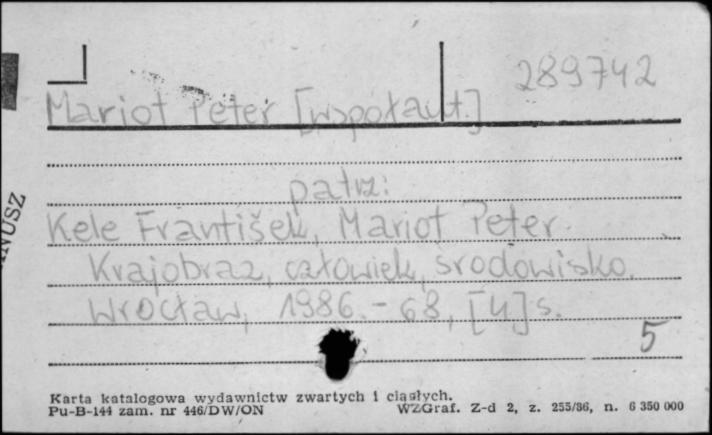 289742
Mariot Peter [współaut.]
patrz:
Kele František, Mariot Peter.
Krajobraz, człowiek, środowisko.
Wrocław, 1986. - 68, [4] s.
5
Karta katalogowa wydawnictw zwartych i ciągłych.
Pu-B-144 zam. nr 446/DW/ON WZGraf. Z-d 2, z. 255/86, n. 6 350 000